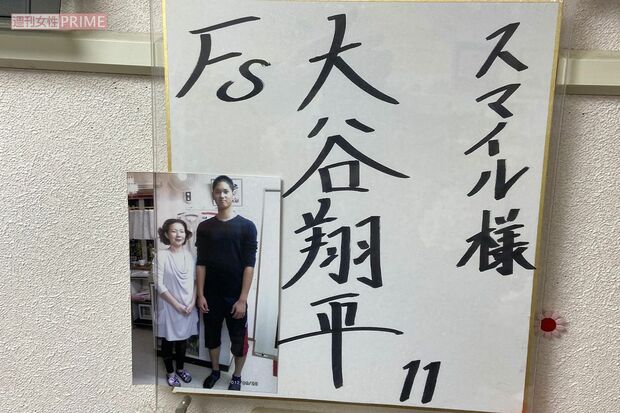 週刊女性PRIME
スマイル様
大谷翔平
11
Fs